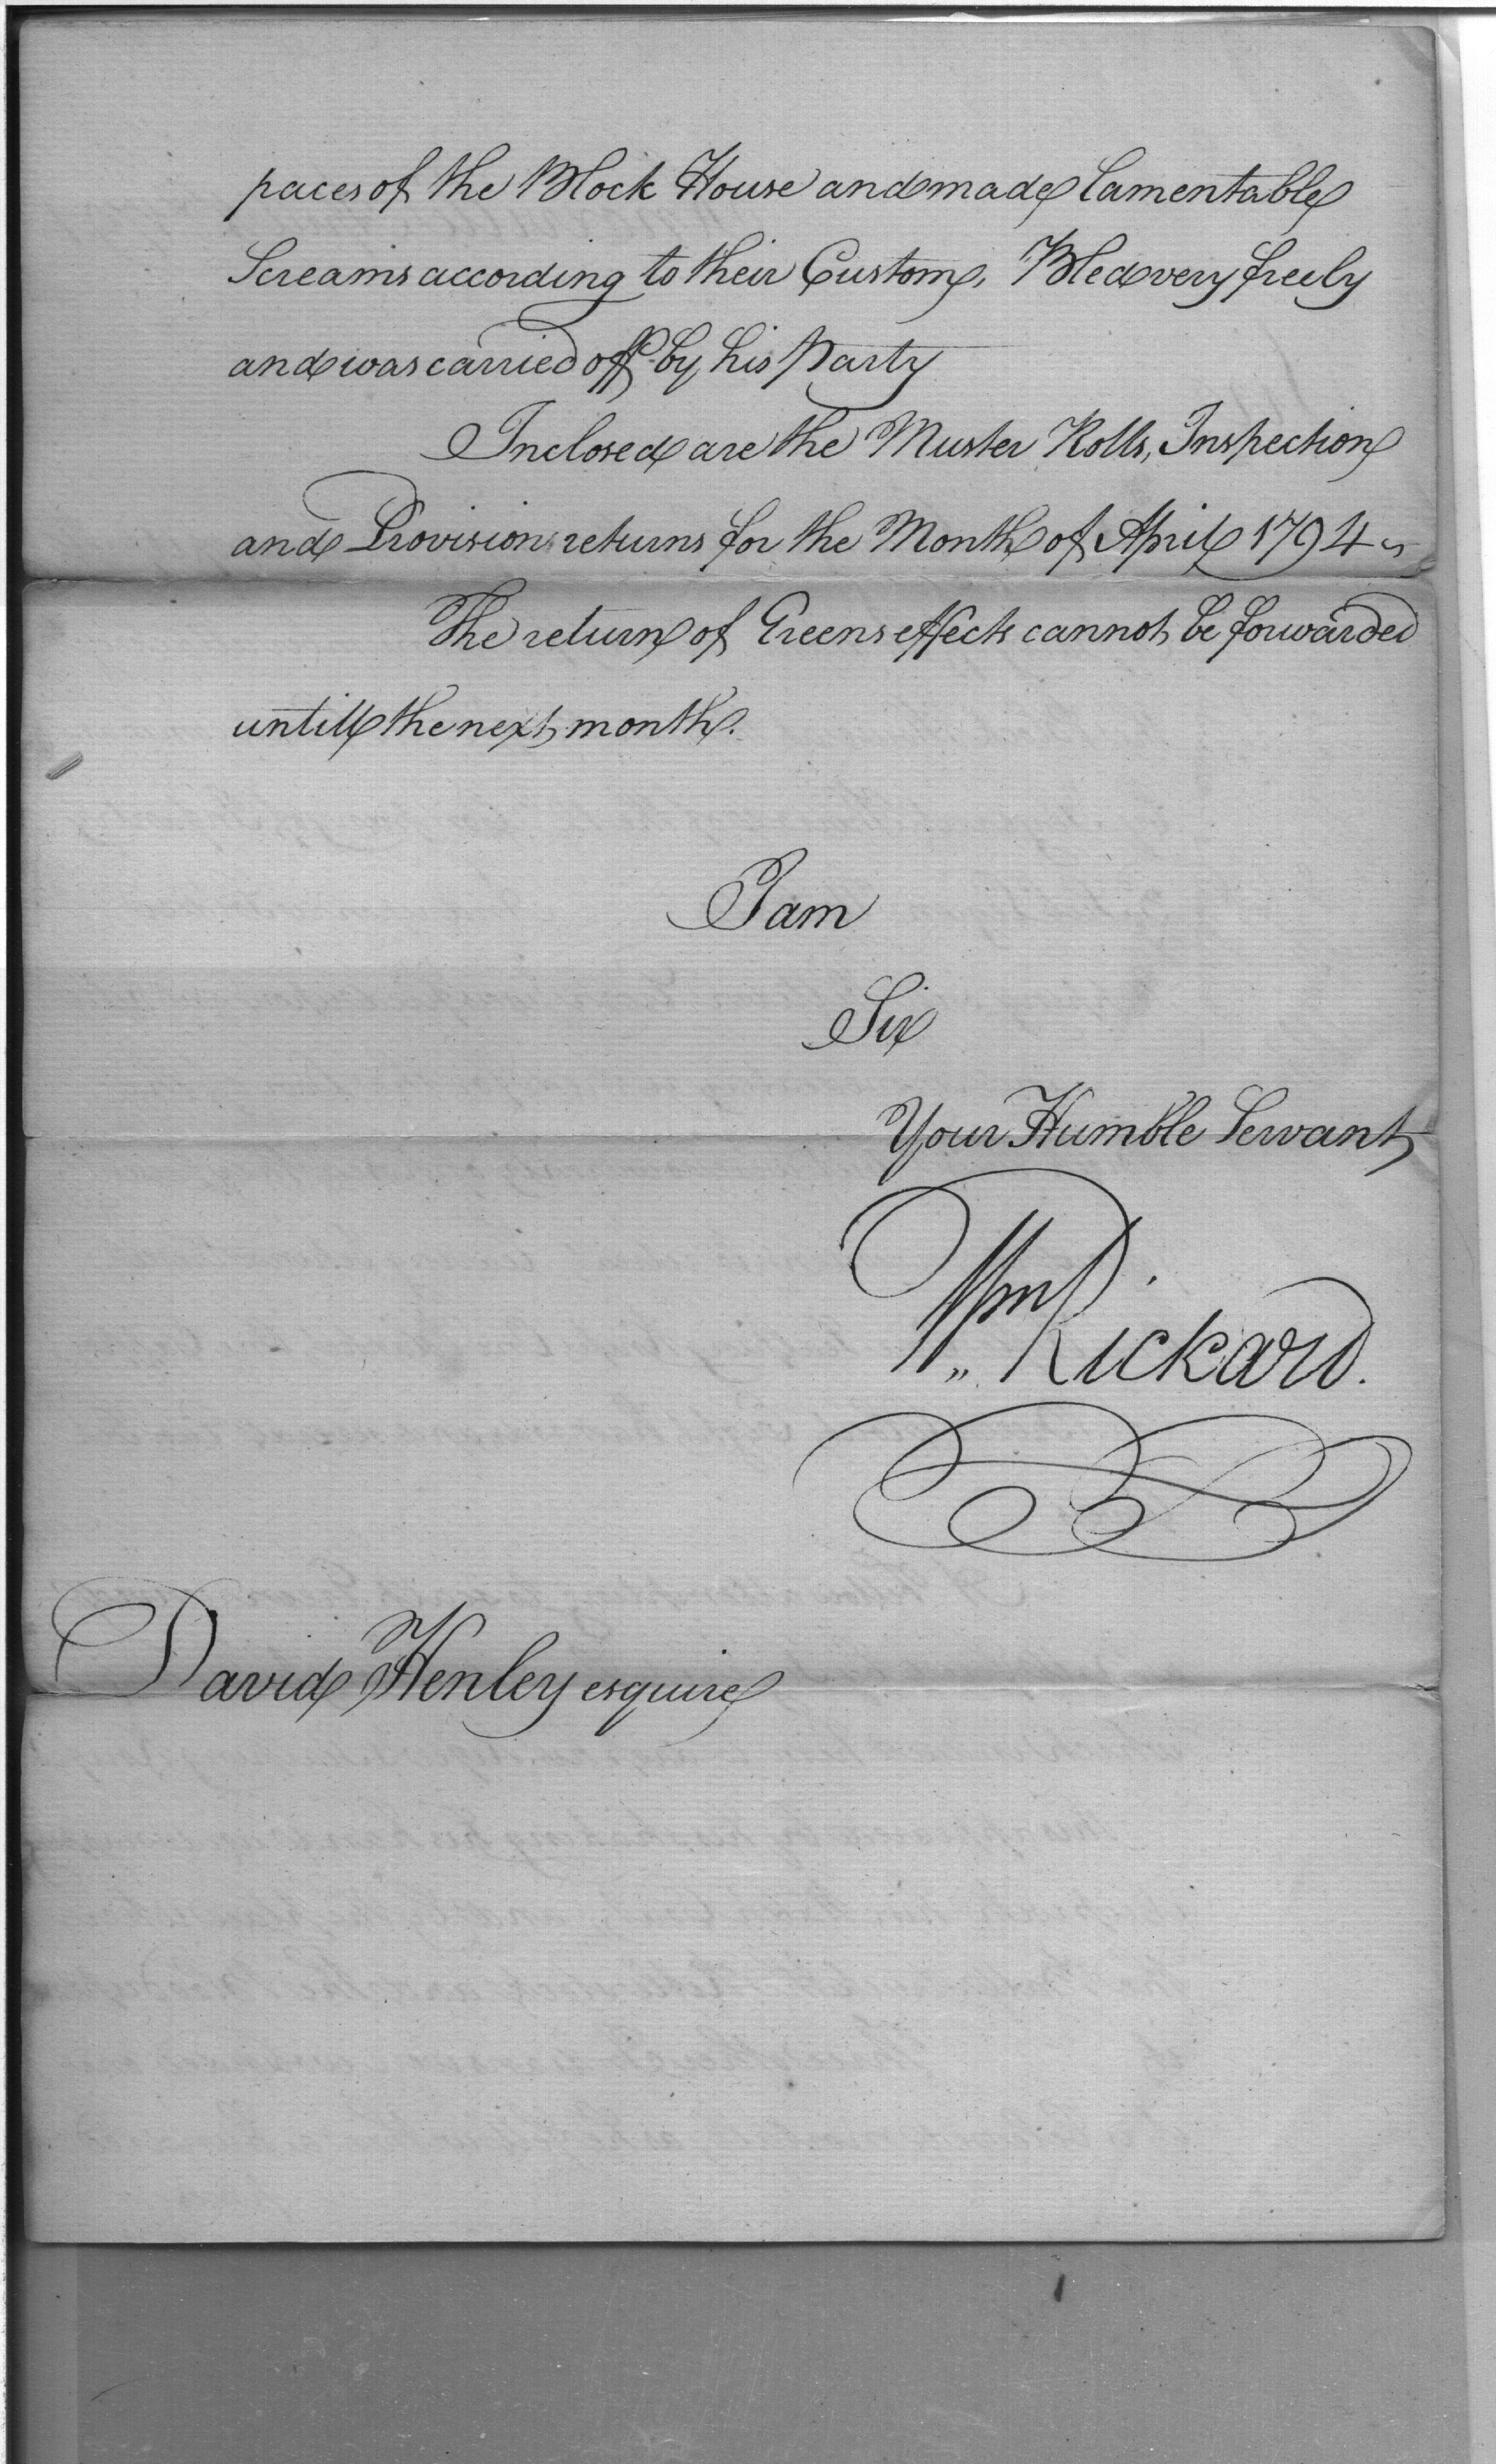 paces of the Block House and made lamentable
Screams according to their Custom, Bled very freely
and was carried off by his Party
Inclosed are the Muster Rolls, Inspection
and Provision returns for the Month of April 1794
The return of Greens effects cannot be forwarded
untill the next month.
I am
Sir
Your Humble Servant
Wm Rickard.
David Henley esquire